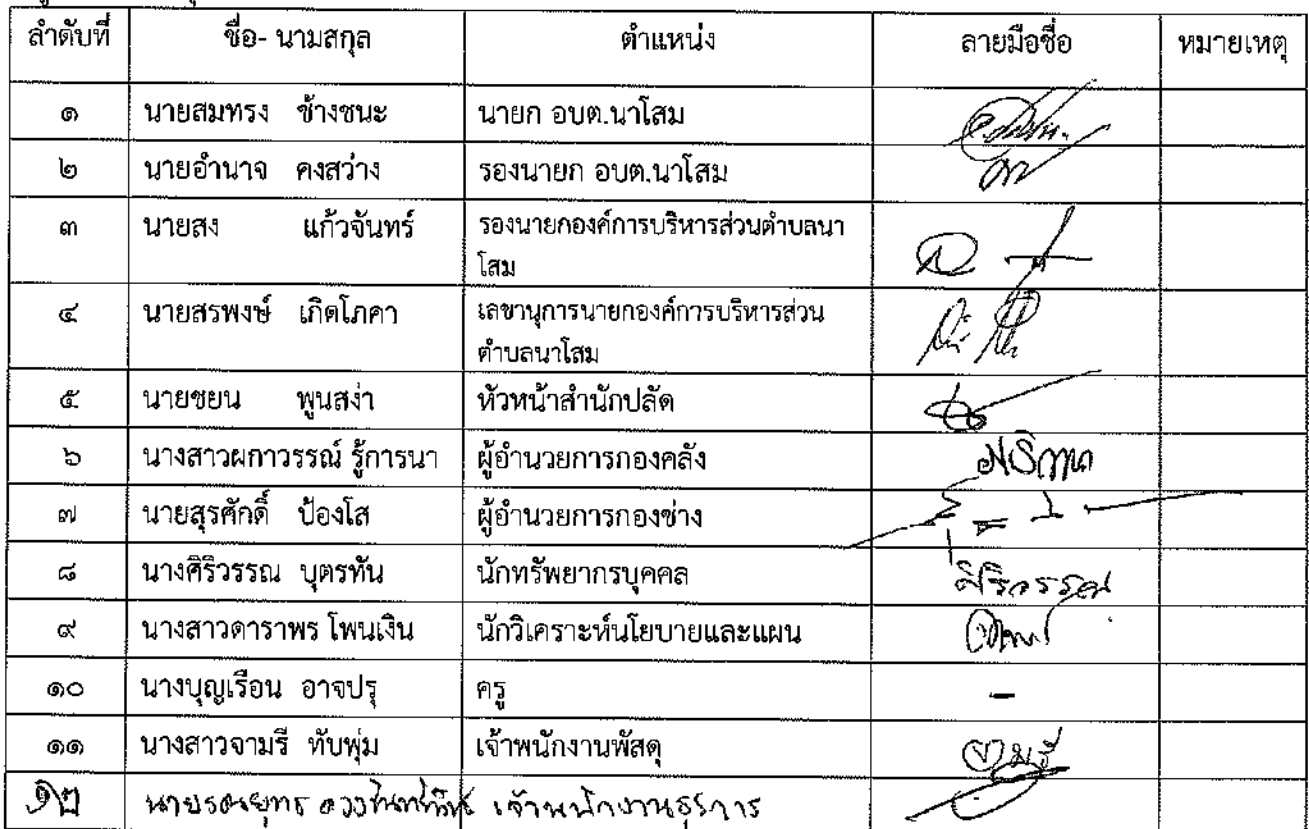 ลำดับที่ ชื่อ- นามสกุล ตำแหน่ง ลายมือชื่อ หมายเหตุ
๑ นายสมทรง ช้างชนะ นายก อบต.นาโสม
๒ นายอำนาจ คงสว่าง รองนายก อบต.นาโสม
๓ นายสง แก้วจันทร์ รองนายกองค์การบริหารส่วนตำบลนา
โสม
๔ นายสรพงษ์ เกิดโภคา เลขานุการนายกองค์การบริหารส่วน
ตำบลนาโสม
๕ นายชยน พูนสง่า หัวหน้าสำนักปลัด
๖ นางสาวผกาวรรณ์ รู้การนา ผู้อำนวยการกองคลัง
๗ นายสุรศักดิ์ ป้องโส ผู้อำนวยการกองช่าง
๘ นางศิริวรรณ บุตรทัน นักทรัพยากรบุคคล ศิริวรรณ
๙ นางสาวดาราพร โพนเงิน นักวิเคราะห์นโยบายและแผน
๑๐ นางบุญเรือน อาจปรุ ครู -
๑๑ นางสาวจามรี ทับพุ่ม เจ้าพนักงานพัสดุ จามรี
๑๒ เจ้าพนักงานธุรการ